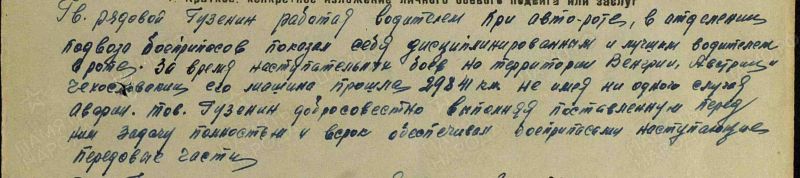 Краткое, конкретное изложение личного боевого подвига или заслуг
Гв. рядовой Гузенин работая водителем при авто-роте, в отделении
подвоза боеприпасов показал себя дисциплинированным и лучшим водителем
в роте. За время наступательных боев на территории Венгрии, Австрии и
Чехословакии его машина прошла 29841 км. не имея ни одного случая
аварии. тов. Гузенин добросовестно выполняя поставленную перед
ним задачу полностью и в срок обеспечивал боеприпасами наступающие
передовые части